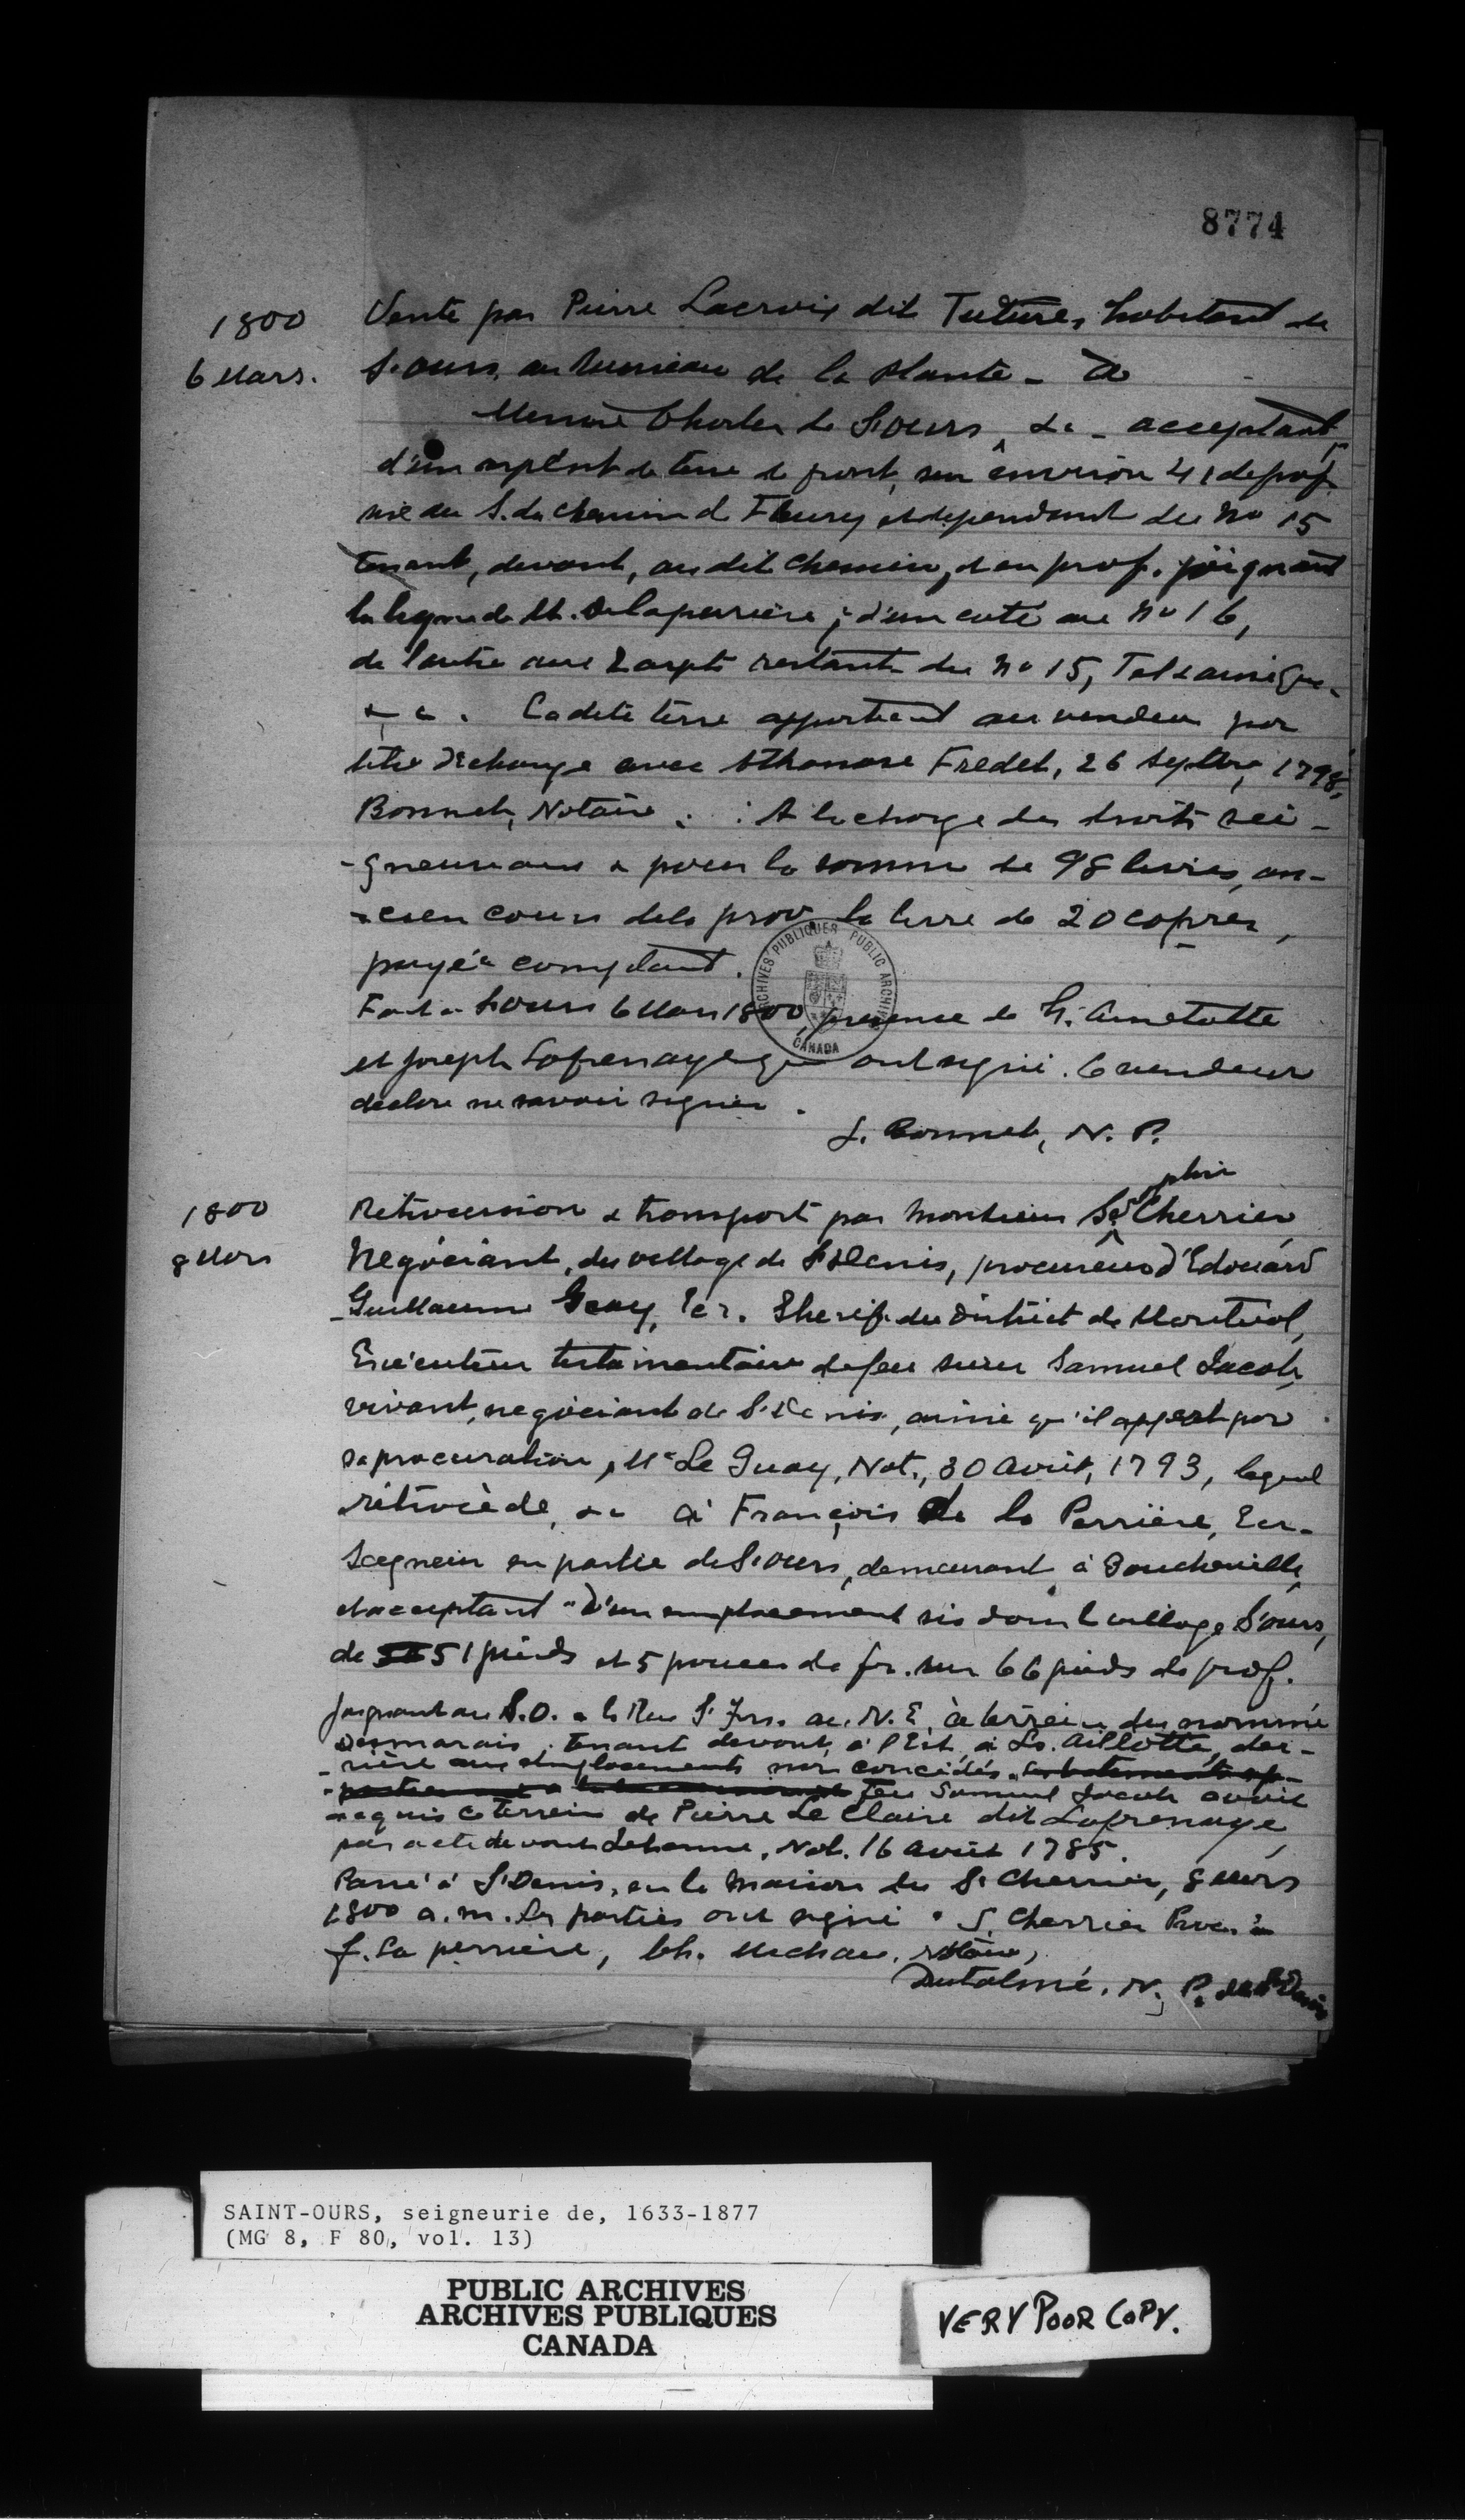 8774
1800
6 Mars.
Vente par Pierre Lacroix dit Tetures habitant de
St. Ours, au ruisseau de la Plante - A
Messire Charles de St. Ours, &c - acceptant,
d'un arpent de terre de front, sur environ 41 de prof.
sise au S. du chemin d Fleury et dependant du No 15
tenant, devant, au dit chemin, et en prof. joignant
la ligne de M. de Laperrière ; d'un coté au No 16,
de l'autre aux 2 arpts restants du No 15, Tel & ainsi que
&c. Ladite terre appartient au vendeur par
titre d'échange avec Athanase Fredet, 26 Septbre 1798,
Bonnet, Notaire. : A la charge des droits sei-
-gneuriaux & pour la somme de 98 livres, an-
-cien cours de la prov. la livre de 20 copres,
payée comptant.
Fait à St. Ours 6 Mars 1800, presence de H. Ametotte
et Joseph Lafrenaye qui ont signé. Le vendeur
declare ne savoir signer.
L. Bonnet, N. P.
1800
8 Mars
Retrocession & transport par Monsieur Sé^phin Cherrier
Négociant, du village de St Denis, procureur d'Edouard
Guillaume Gray, Ecr. Sherif du District de Montréal,
Exécuteur testamentaire de feu sieur Samuel Jacob,
vivant, négociant de St. Denis, ainsi qu'il appert par
sa procuration, Me Le Guay, Not., 30 Août, 1793, lequel
rétrocède, &c à François de la Perrière, Ecr.
Seigneur en partie de St. Ours, demeurant à Boucherville,
et acceptant "d'un emplacement sis dans le village St. Ours,
de 51 pieds et 5 pouces de fr. sur 66 pieds de prof.
joignant au S.O. à la Rue St Frs. au N.E. à terrein du nommé
Desmarais. tenant devant, à l'Est, à Ls. Aillotte, der-
-rière aux emplacements non concédés. Les batements ap-
-partiennent à feu Samuel Jacob avait
acquis ce terrein de Pierre Le Claire dit Lafrenaye,
par acte devant Jehanne, Not. 16 Août 1785.
Passé à St Denis, en la Maison du Sr Cherrier, 8 Mars
1800 a.m. Les parties ont signé. S. Cherrier Procr.
f. La perrière, Ch. Michau, Notaire,
Dutalmé, N. P. de St Denis
ARCHIVES PUBLIQUES PUBLIC ARCHIVES
CANADA
SAINT-OURS, seigneurie de, 1633-1877
(MG 8, F 80, vol. 13)
PUBLIC ARCHIVES
ARCHIVES PUBLIQUES
CANADA
VERY POOR COPY.